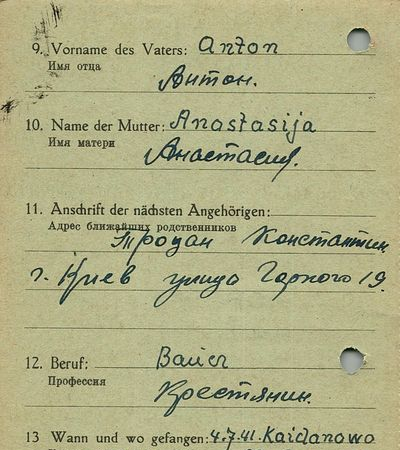 9. Vorname des Vaters: Anton
Имя отца
Антон.
10. Name der Mutter: Anastasija
Имя матери
Анастасия.
11. Anschrift der nächsten Angehörigen:
Адрес ближайших родственников
Троцан Константин.
г. Киев улица Горкого 19.
12. Beruf: Bauer
Профессия
Крестянин.
13 Wann und wo gefangen: 4.7.41. Kaidanowo